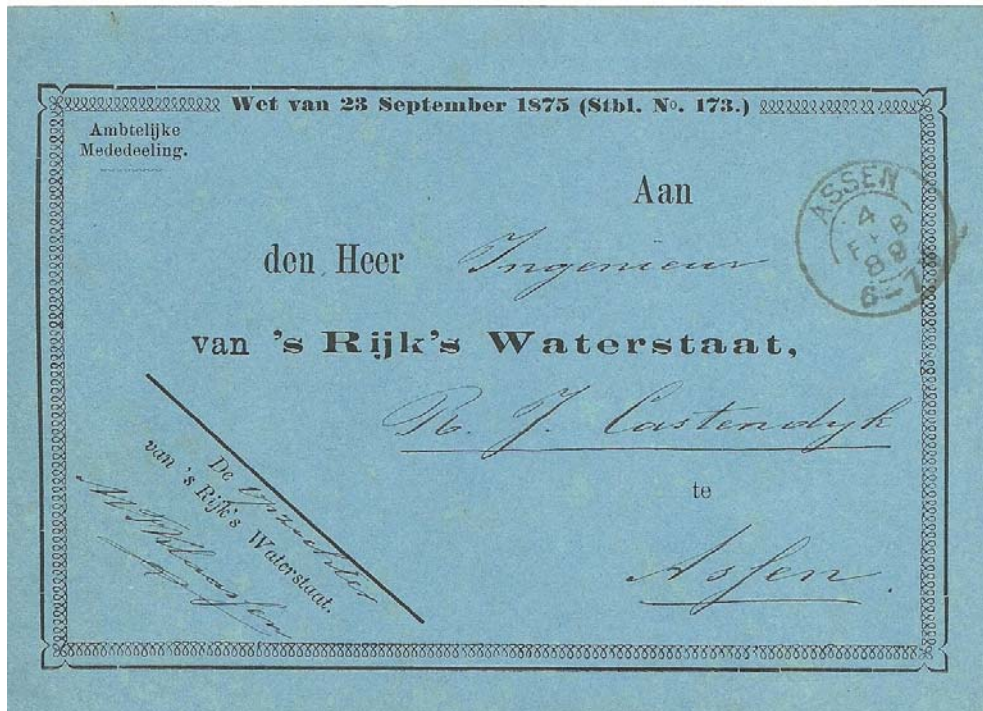 Wet van 23 September 1875 (Stbl. No. 173.)
Ambtelijke
Mededeeling.
Aan
den Heer Ingenieur
van 's Rijk's Waterstaat,
R. J. Castendyk
te
Assen.
ASSEN
4
FEB
89
6-7
De Opzichter
van 's Rijk's Waterstaat.